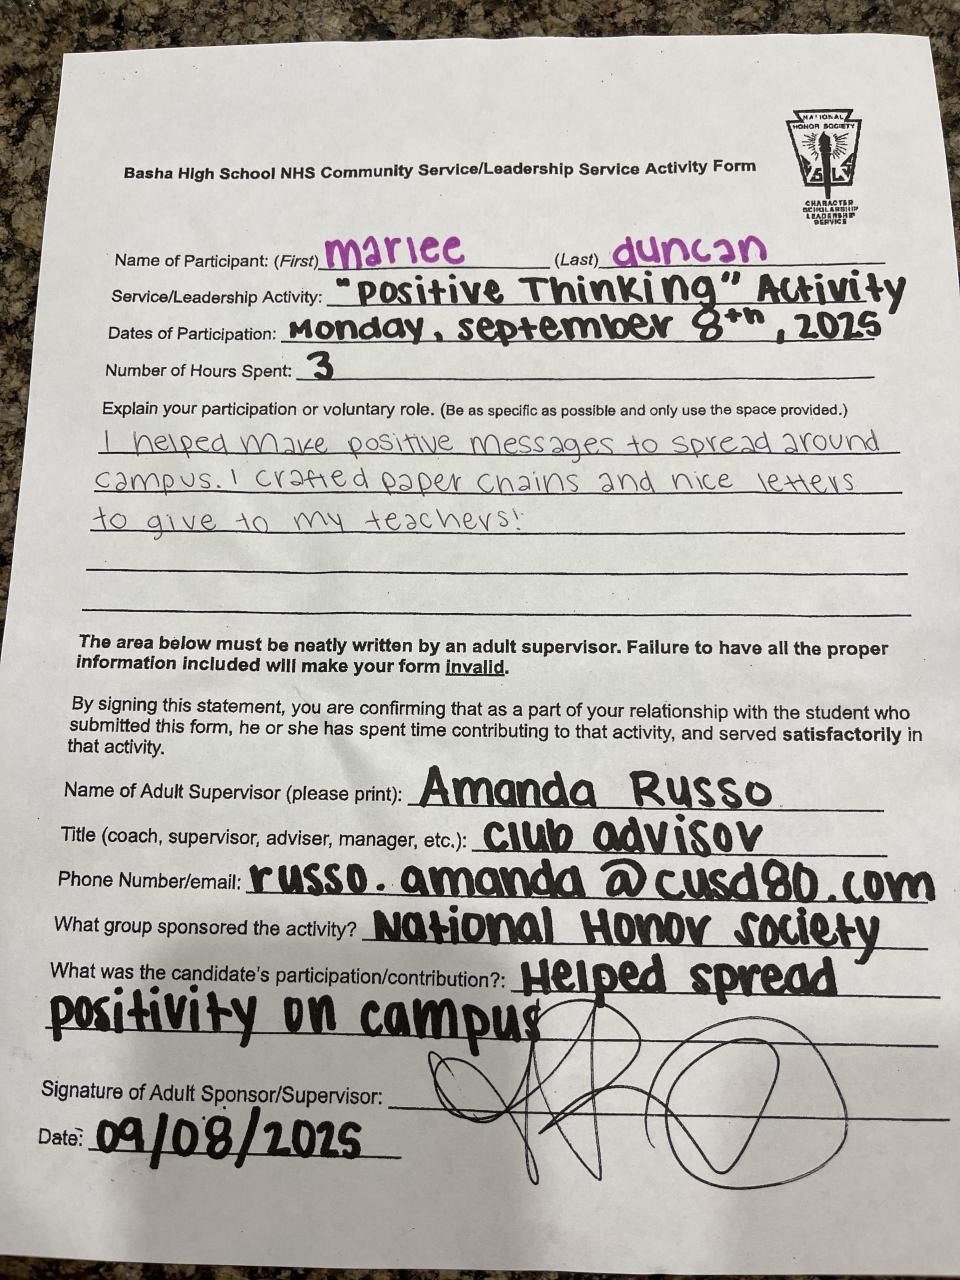 NATIONAL
HONOR SOCIETY
CHARACTER
SCHOLARSHIP
LEADERSHIP
SERVICE
Basha High School NHS Community Service/Leadership Service Activity Form
Name of Participant: (First) marlee (Last) duncan
Service/Leadership Activity: "Positive Thinking" Activity
Dates of Participation: Monday, september 8th, 2025
Number of Hours Spent: 3
Explain your participation or voluntary role. (Be as specific as possible and only use the space provided.)
I helped make positive messages to spread around
campus. I crafted paper chains and nice letters
to give to my teachers!
The area below must be neatly written by an adult supervisor. Failure to have all the proper
information included will make your form invalid.
By signing this statement, you are confirming that as a part of your relationship with the student who
submitted this form, he or she has spent time contributing to that activity, and served satisfactorily in
that activity.
Name of Adult Supervisor (please print): Amanda Russo
Title (coach, supervisor, adviser, manager, etc.): club advisor
Phone Number/email: russo.amanda@cusd80.com
What group sponsored the activity? National Honor Society
What was the candidate's participation/contribution?: Helped spread
positivity on campus
Signature of Adult Sponsor/Supervisor:
Date: 09/08/2025